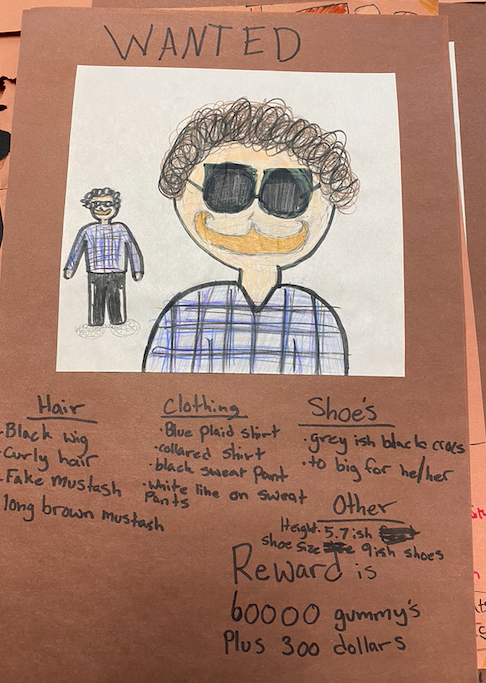 WANTED
Hair
·Black wig
·Curly hair
·Fake mustash
long brown mustash
Clothing
·Blue plaid shirt
·collared shirt
·black sweat pant
·white line on sweat
pants
Shoe's
·grey ish black crocs
·to big for he/her
Other
Height·5.7ish
shoe size 9ish shoes
Reward is
60000 gummy's
Plus 300 dollars